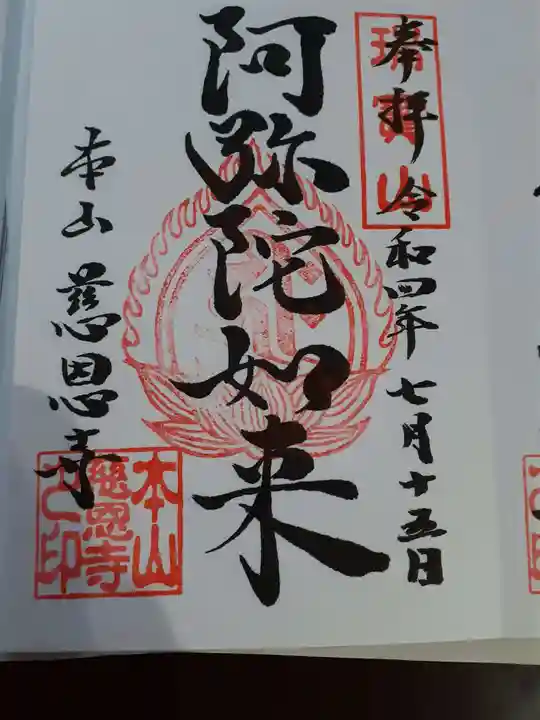 奉拝 令和四年 七月十五日
瑞寶山
阿弥陀如来
本山 慈恩寺
本山
慈恩寺
之印